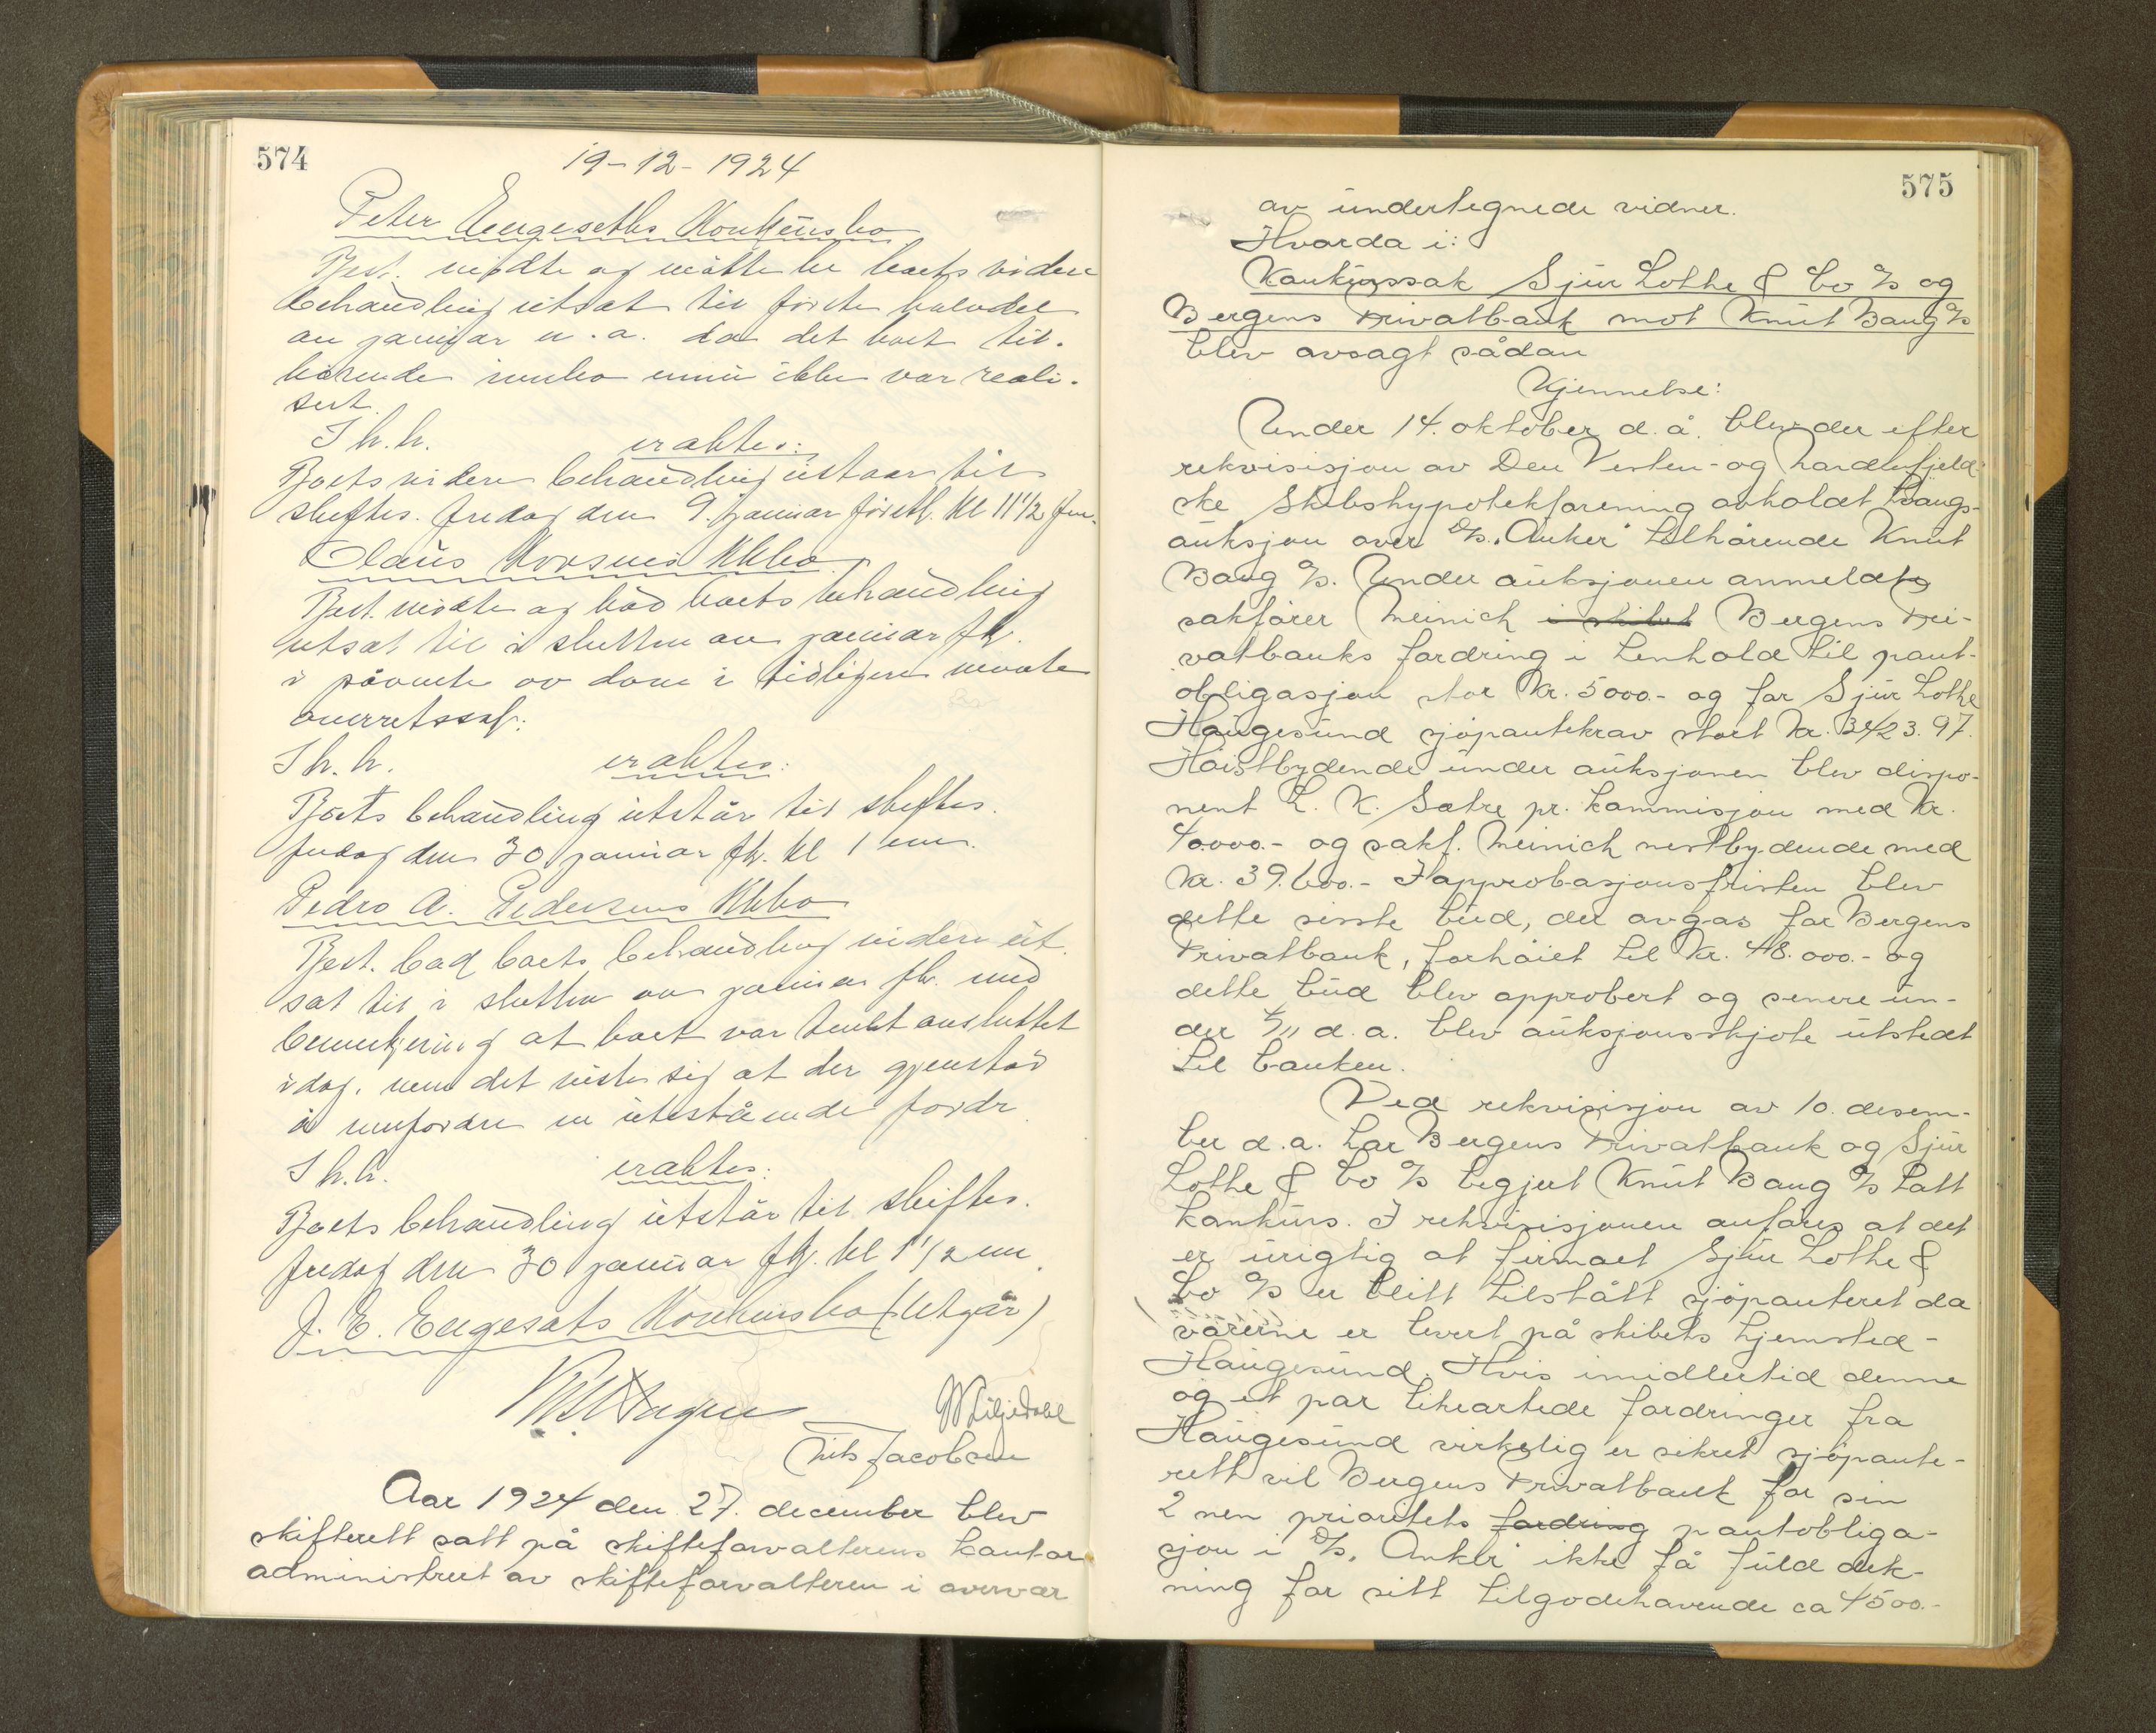 574
19-12-1924
Peter Eengeseths Konkursbo
Best. mødte og måtte be boets videre
behandling utsat til første halvdel
av januar n.a. da det boet til-
hørende innbo ennu ikke var reali-
sert.
I h.h. eraktes:
Boets videre behandling utstaar til
skiftes. fredag den 9. januar førstk. kl 11 1/2 fm.
Olaus Korsnes Kkbo
Best. mødte og bad boets behandling
utsat til i slutten av januar fk.
i påvente av dom i tidligere nevnte
overretssak:
I h.h. eraktes:
Boets behandling utstår til skiftes.
fredag den 30 januar fk. kl 1 em.
Pedro A. Pedersens Kkbo
Best. bad boets behandling videre ut
sat til i slutten av januar fk. med
bemerkning at boet var tenkt avsluttet
idag, men det viste sig at der gjenstod
å innfordre en utestående fordr.
I h.h. eraktes:
Boets behandling utstår til skiftes.
fredag den 30 januar fk. kl 1 1/2 em.
J. E. Engesats Konkursbo (Utgår)
W Liljedahl
Nils Jacobsen
Aar 1924 den 27. december blev
skifterett satt på skifteforvalterens kontor
administreret av skifteforvalteren i overvær
575
av undertegnede vidner.
Hvorda i:
Konkurssak Sjur Lothe & Co A/S og
Bergens Privatbank mot Knut Baug A/S
blev avsagt sådan
Kjennelse:
Under 14. oktober d.å. blev der efter
rekvisisjon av Den Vesten- og Nordenfjeld-
ske Skibshypotekforening avholdt tvangs-
auksjon over D/S. "Anker" tilhørende Knut
Baug A/S. Under auksjonen anmeldte
sakfører Meinich i skibet Bergens Pri-
vatbanks fordring i henhold til pant-
obligasjon stor Kr. 5000.- og for Sjur Lothe
Haugesund sjøpantekrav stort Kr. 3423.97.
Høistbydende under auksjonen blev dispo-
nent H. K. Sætre pr. kommisjon med Kr.
40000.- og sakf. Meinich nestbydende med
Kr. 39.600.- I approbasjonsfristen blev
dette siste bud, der avgas for Bergens
Privatbank, forhøiet til Kr. 48.000.- og
dette bud blev approbert og senere un-
der /11 d.a. blev auksjonsskjøte utstedt
til banken.
Ved rekvisisjon av 10. desem-
ber d.a. har Bergens Privatbank og Sjur
Lothe & Co A/S begjert Knut Baug A/S tatt
konkurs. I rekvisisjonen anføres at det
er urigtig at firmaet Sjur Lothe &
Co A/S er blitt tilstått sjøpanteret da
varerne er levert på skibets hjemsted -
Haugesund. Hvis imidlertid denne
og et par likeartede fordringer fra
Haugesund virkelig er sikret sjøpante-
rett vil Bergens Privatbank for sin
2 nen prioritets fordring pantobliga-
sjon i D/S. "Anker" ikke få fuld dek-
ning for sitt tilgodehavende ca 4500.-